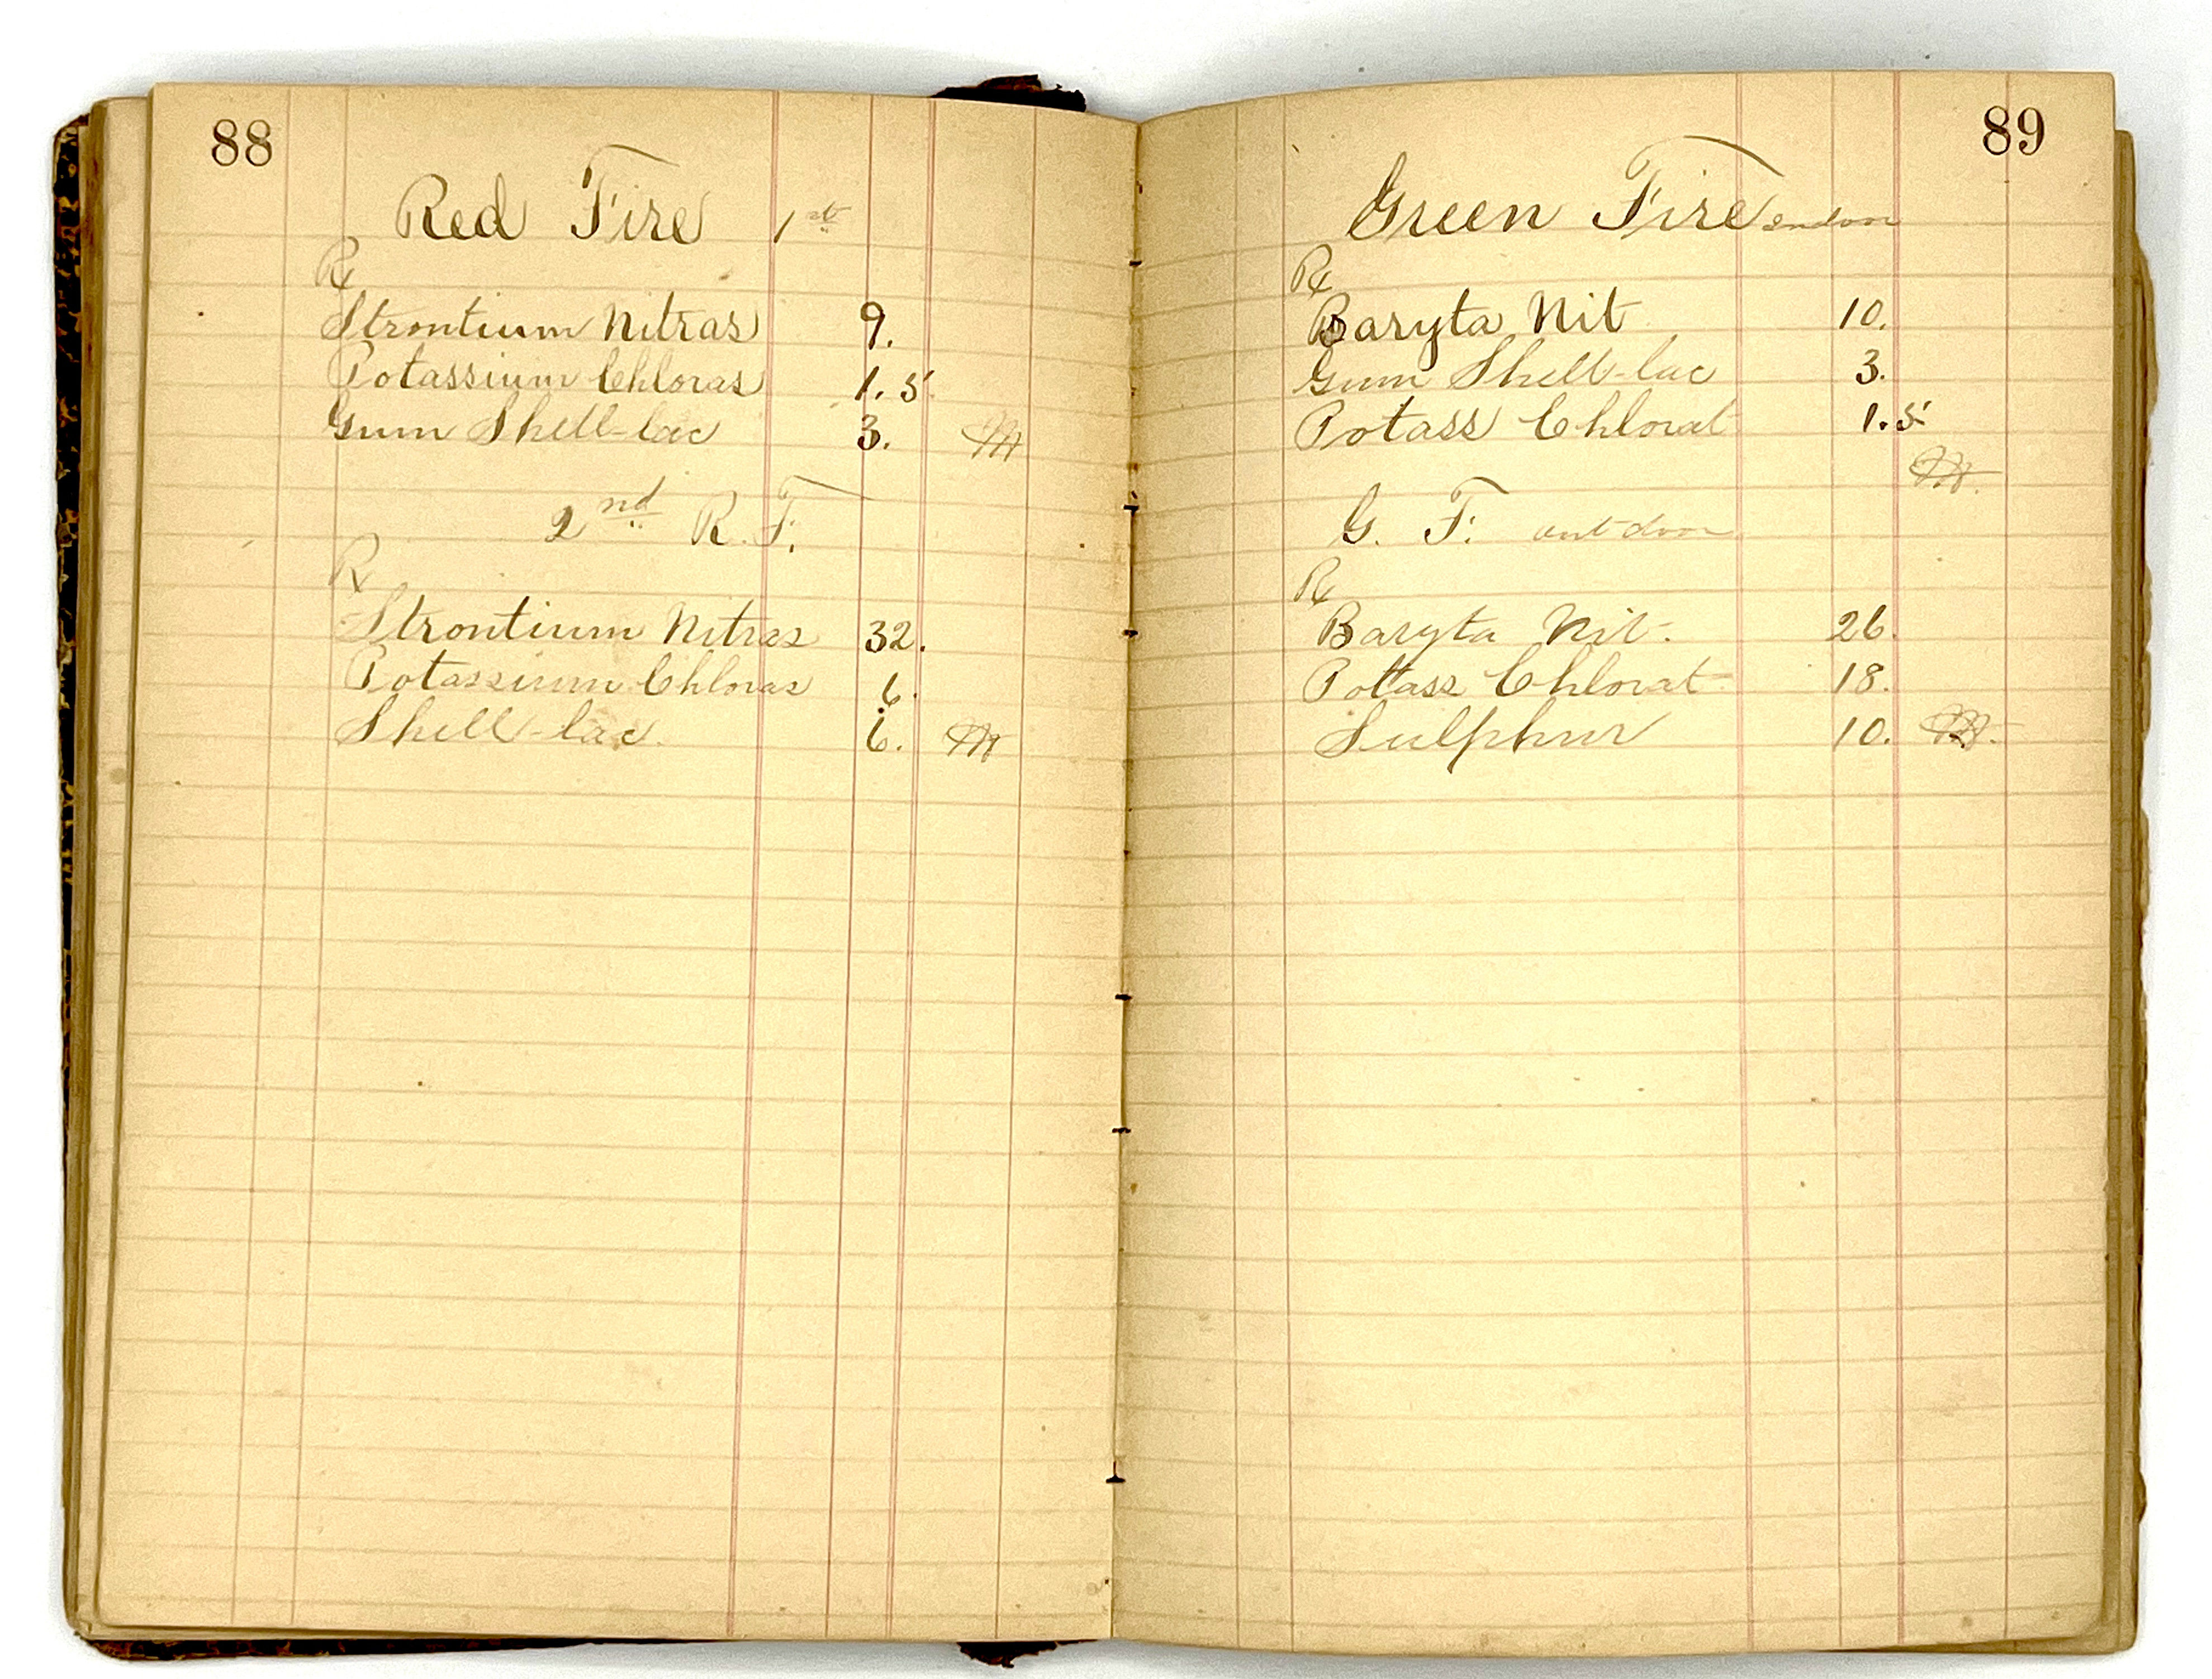 88
Red Fire 1st
℞
Strontium Nitras 9.
Potassium Chloras 1.5
Gum Shell-lac 3. M
2nd R. F.
℞
Strontium Nitras 32.
Potassium Chloras 6.
Shell-lac. 6. M
89
Green Fire indoor
℞
Baryta Nit 10.
Gum Shell-lac 3.
Potass Chlorat 1.5
M.
G. F. outdoor
℞
Baryta Nit. 26.
Potass Chlorat 18.
Sulphur 10. M.